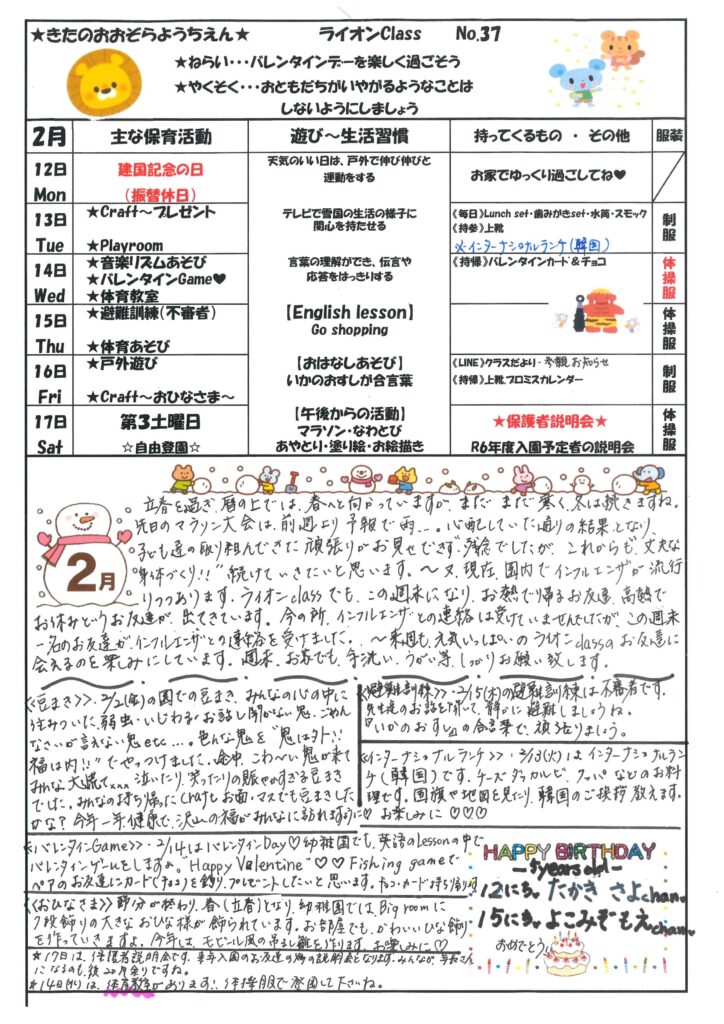 ★きたのおおぞらようちえん★ ライオンClass No.37
★ねらい・・・バレンタインデーを楽しく過ごそう
★やくそく・・・おともだちがいやがるようなことは
しないようにしましょう
2月 主な保育活動 遊び～生活習慣 持ってくるもの ・ その他 服装
12日 Mon 建国記念の日 (振替休日) 天気のいい日は、戸外で伸び伸びと 運動をする お家でゆっくり過ごしてね♥
13日 Tue ★Craft～プレゼント ★Playroom テレビで雪国の生活の様子に 関心を持たせる 《毎日》Lunch set・歯みがきset・水筒・スモック 《持参》上靴 ※インターナショナルランチ(韓国) 制服
14日 Wed ★音楽リズムあそび ★バレンタインGame♥ ★体育教室 言葉の理解ができ、伝言や 応答をはっきりする 《持帰》バレンタインカード&チョコ 体操服
15日 Thu ★避難訓練(不審者) ★体育あそび 【English lesson】 Go shopping 体操服
16日 Fri ★戸外遊び ★Craft～おひなさま～ 【おはなしあそび】 いかのおすしが合言葉 《LINE》クラスだより・参観お知らせ 《持帰》上靴 プロミスカレンダー 制服
17日 Sat 第3土曜日 ☆自由登園☆ 【午後からの活動】 マラソン・なわとび あやとり・塗り絵・お絵描き ★保護者説明会★ R6年度入園予定者の説明会 体操服
2月
立春を過ぎ暦の上では、春へと向かっていますが、まだまだ寒く、冬は続きますね。
先日のマラソン大会は、前週より予報で雨…。心配していた通りの結果となり、
子ども達の取り組んできた頑張りがお見せできず残念でしたが、これからも"丈夫な
身体づくり!!"続けていきたいと思います。～又、現在、国内でインフルエンザが流行
りつつあります。ライオンclassでも、この週末になり、お熱で帰るお友達、高熱で
お休みというお友達が、出てきています。今の所、インフルエンザとの連絡は受けていませんでしたが、この週末
一名のお友達が、インフルエンザとの連絡を受けました。～来週も、元気いっぱいのライオンclassのお友達に
会えるのを楽しみにしています。週末、お家でも、手洗い、うがい等、しっかりお願い致します。
《豆まき》・2/2(金)の園での豆まき、みんなの心の中に
住みついた、弱虫・いじわる・お話し聞かない鬼、ごめん
なさいが言えない鬼etc…。色んな鬼を"鬼は外!!
福は内!!"でやっつけました。途中、こわ～い鬼が来て
みんな大慌て…泣いたり、笑ったりの賑やかすぎる豆まき
でした。みんなの持ち帰ったCraftもお面・マスでも豆まきした
かな?今年一年、健康で、沢山の福がみんなに訪れますように♡
《避難訓練》・2/15(木)の避難訓練は不審者です。
先生達のお話を聞いて、静かに避難しましょうね。
『いかのおすし』の合言葉で、頑張りましょう。
《インターナショナルランチ》・2/13(火)はインターナショナルラン
チ(韓国)です。チーズダッカルビ、クッパなどのお料
理です。国旗や地図を見たり、韓国のご挨拶教えます。
お楽しみに♡♡♡
《バレンタインGame》・2/14はバレンタインDay♡幼稚園でも、英語のlessonの中で
バレンタインゲームをしますよ。"Happy Valentine"♡♡Fishing gameで
ペアのお友達にカードと(チョコ)を釣り、プレゼントしたいと思います。チョコ・カード持ち帰ります
《おひなさま》節分が終わり、春(立春)となり、幼稚園では、Big roomに
7段飾りの大きなおひな様が飾られています。お部屋でも、かわいいひな飾り
を作っていきますよ。今年は、モビール風の吊るし雛を作ります。お楽しみに♡
★17日は、保護者説明会です。来年入園のお友達の為の説明会となります。みんなが年長さん
になるのも、後20日余りですね。
★14日(水)は、体育教室があります!体操服で登園して下さいね。
HAPPY BIRTHDAY
-5years old-
12にち。たかき さよchan。
15にち。よこみぞ もえchan。
おめでとう